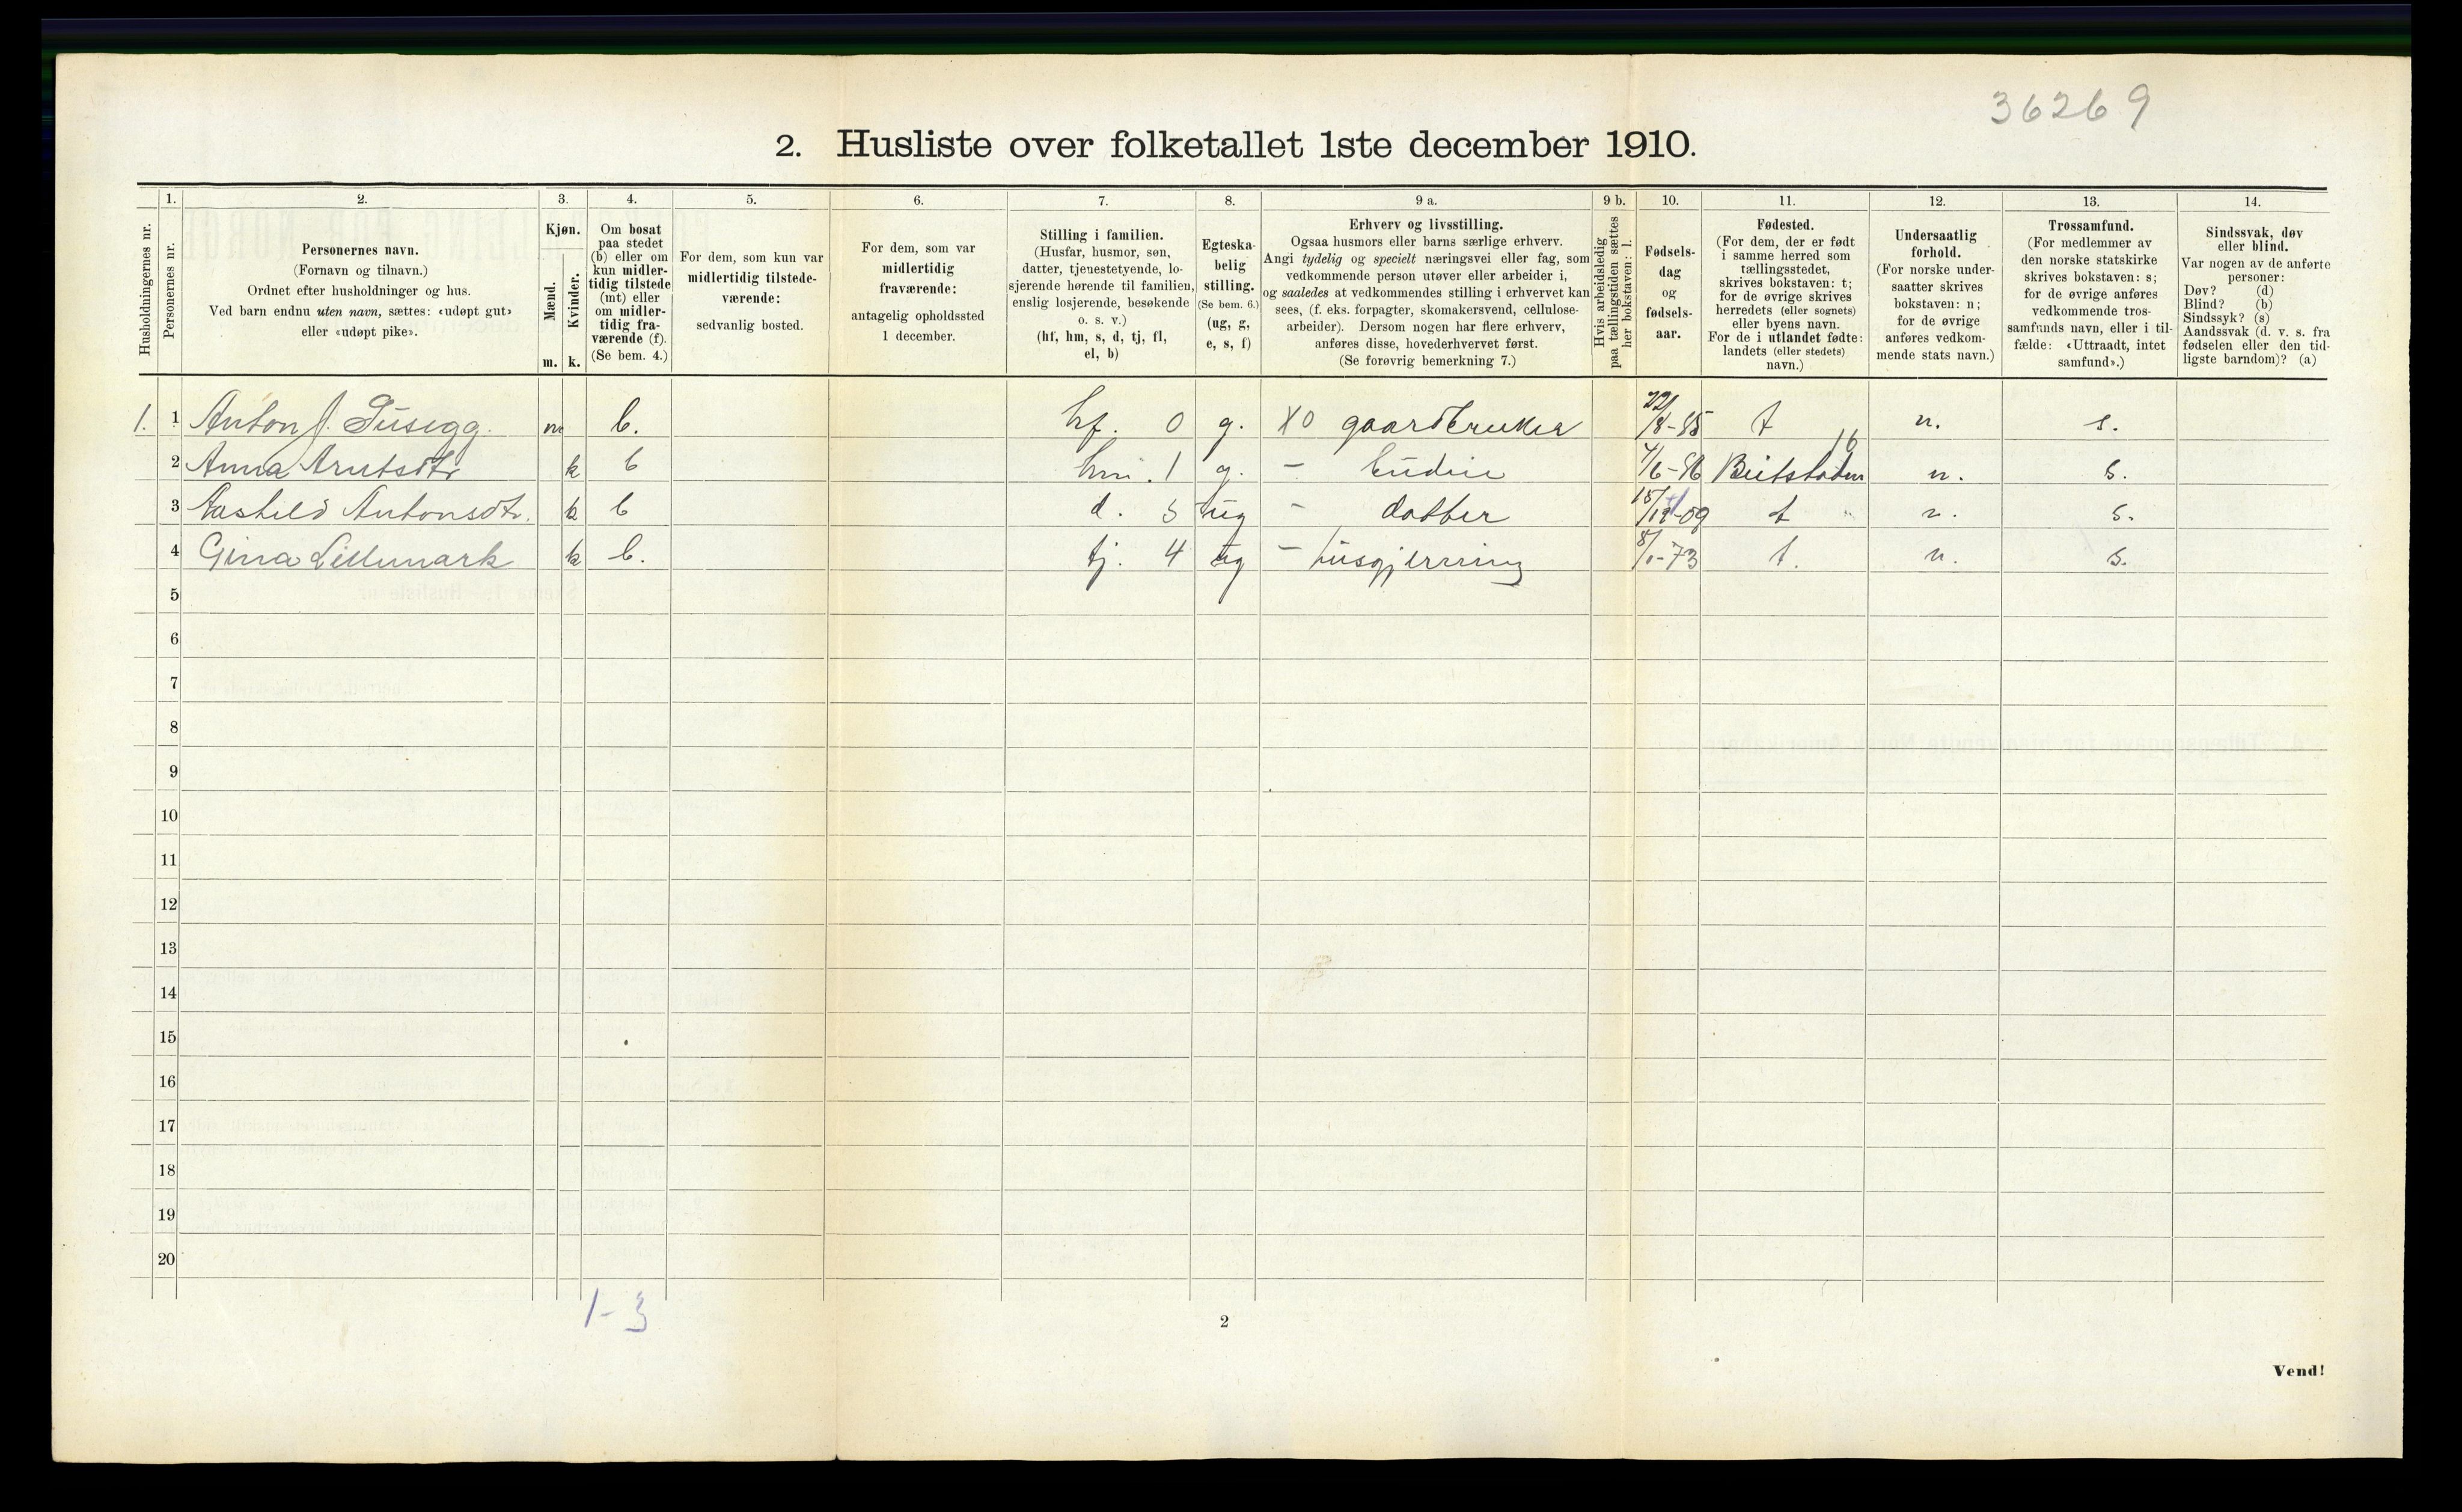 36269
2. Husliste over folketallet 1ste december 1910.
Husholdningernes nr.
1.
Personernes nr.
2.
Personernes navn.
(Fornavn og tilnavn.)
Ordnet efter husholdninger og hus.
Ved barn endnu uten navn, sættes: «udøpt gut»
eller «udøpt pike».
3.
Kjøn.
Mænd.
Kvinder.
m. k.
4.
Om bosat
paa stedet
(b) eller om
kun midler-
tidig tilstede
(mt) eller
om midler-
tidig fra-
værende (f).
(Se bem. 4.)
5.
For dem, som kun var
midlertidig tilstede-
værende:
sedvanlig bosted.
6.
For dem, som var
midlertidig
fraværende:
antagelig opholdssted
1 december.
7.
Stilling i familien.
(Husfar, husmor, søn,
datter, tjenestetyende, lo-
sjerende hørende til familien,
enslig losjerende, besøkende
o. s. v.)
(hf, hm, s, d, tj, fl,
el, b)
8.
Egteska-
belig
stilling.
(Se bem. 6.)
(ug, g,
e, s, f)
9 a.
Erhverv og livsstilling.
Ogsaa husmors eller barns særlige erhverv.
Angi tydelig og specielt næringsvei eller fag, som
vedkommende person utøver eller arbeider i,
og saaledes at vedkommendes stilling i erhvervet kan
sees, (f. eks. forpagter, skomakersvend, cellulose-
arbeider). Dersom nogen har flere erhverv,
anføres disse, hovederhvervet først.
(Se forøvrig bemerkning 7.)
9 b.
Hvis arbeidsledig
paa tællingstiden sættes
her bokstaven: l.
10.
Fødsels-
dag
og
fødsels-
aar.
11.
Fødested.
(For dem, der er født
i samme herred som
tællingsstedet,
skrives bokstaven: t;
for de øvrige skrives
herredets (eller sognets)
eller byens navn.
For de i utlandet fødte:
landets (eller stedets)
navn.)
12.
Undersaatlig
forhold.
(For norske under-
saatter skrives
bokstaven: n;
for de øvrige
anføres vedkom-
mende stats navn.)
13.
Trossamfund.
(For medlemmer av
den norske statskirke
skrives bokstaven: s;
for de øvrige anføres
vedkommende tros-
samfunds navn, eller i til-
fælde: «Uttraadt, intet
samfund».)
14.
Sindssvak, døv
eller blind.
Var nogen av de anførte
personer:
Døv? (d)
Blind? (b)
Sindssyk? (s)
Aandssvak (d. v. s. fra
fødselen eller den tid-
ligste barndom)? (a)
1. 1 Anton J. Tusegg. m b. hf. 0 g. X0 gaardbruker 22/8-85 t n. s.
2 Anna Arntsdtr k b hm. 1 g. - 4/6-86 Beitstaden 16 n. s.
3 Aashild Antonsdtr. k b d. 5 ug - datter t n. s.
4 Gina Lillemark k b. tj. 4 ug - husgjerning 8/1-73 t. n. s.
5
6
7
8
9
10
11
12
13
14
15
16
17
18
19
20
1-3
2
Vend!